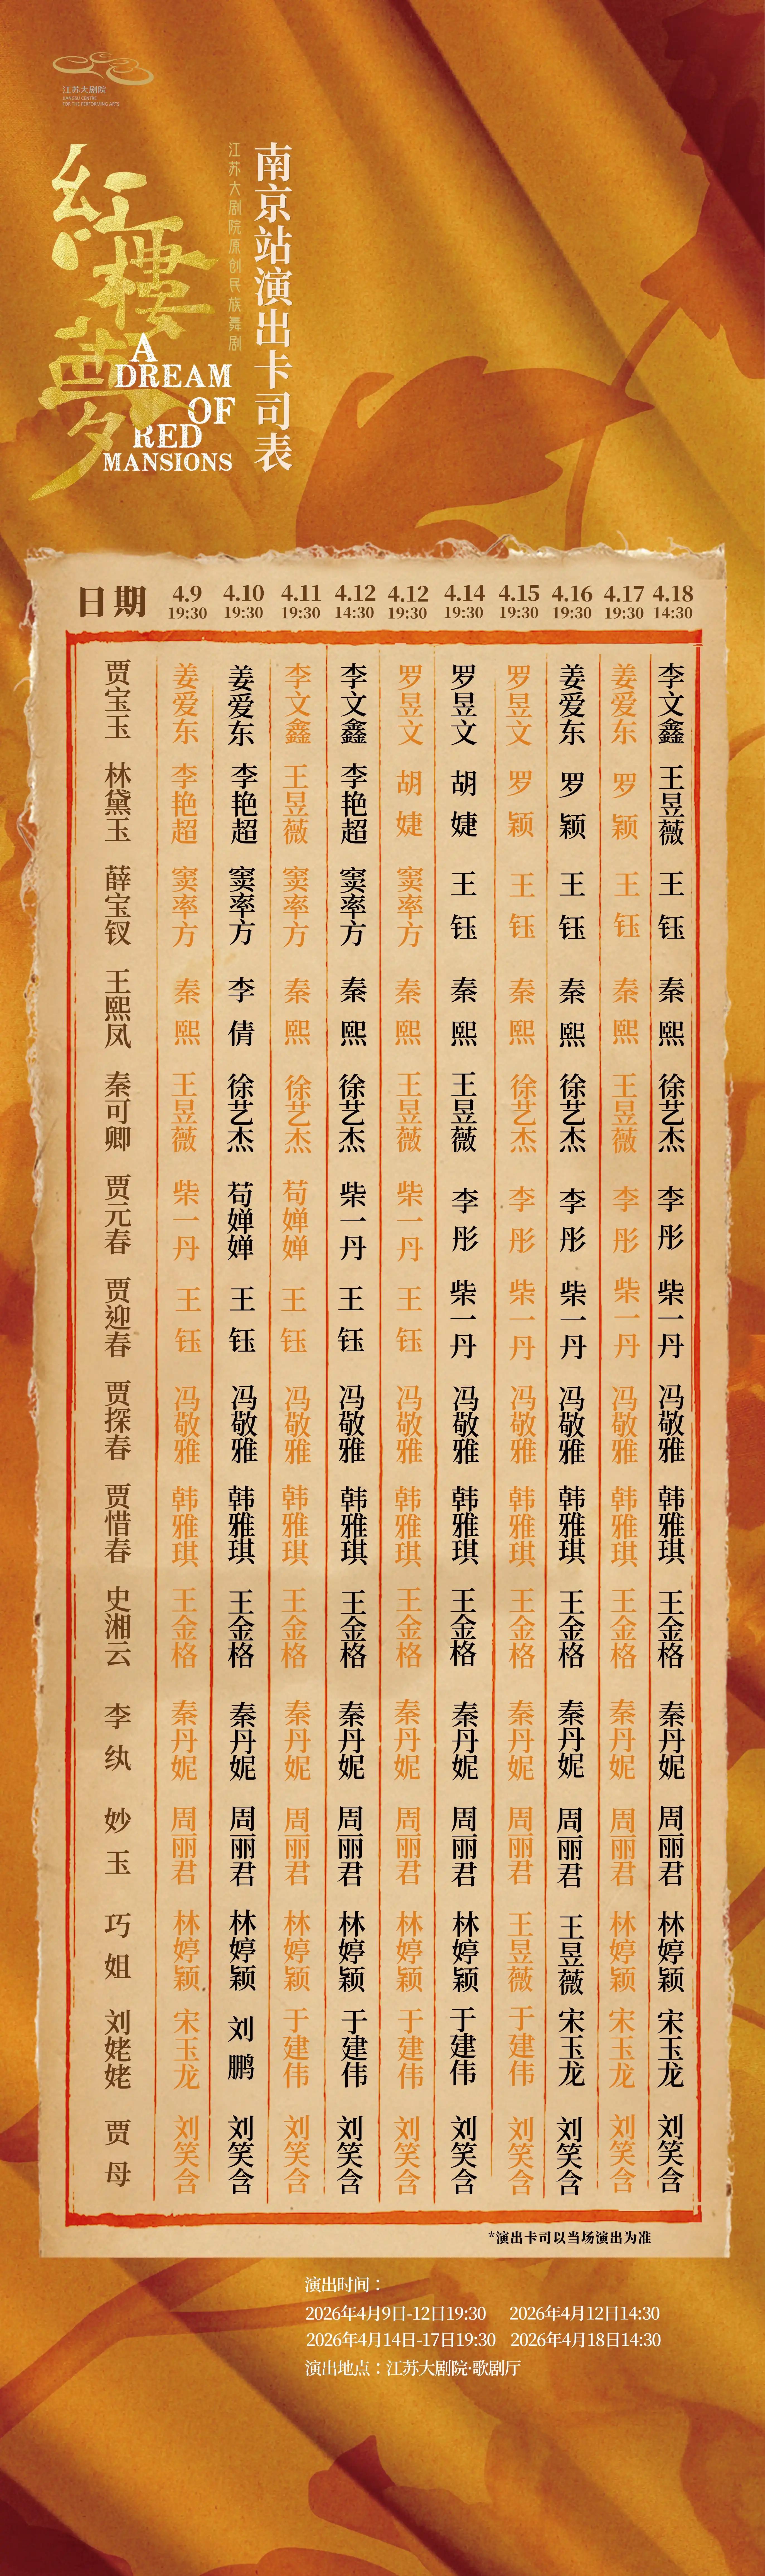 江苏大剧院
JIANGSU CENTRE
FOR THE PERFORMING ARTS
红楼梦
A
DREAM
OF
RED
MANSIONS
江苏大剧院原创民族舞剧
南京站演出卡司表
日期 4.9 4.10 4.11 4.12 4.12 4.14 4.15 4.16 4.17 4.18
19:30 19:30 19:30 14:30 19:30 19:30 19:30 19:30 19:30 14:30
贾宝玉 姜爱东 姜爱东 李文鑫 李文鑫 罗昱文 罗昱文 罗昱文 姜爱东 姜爱东 李文鑫
林黛玉 李艳超 李艳超 王昱薇 李艳超 胡婕 胡婕 罗颖 罗颖 罗颖 王昱薇
薛宝钗 窦率方 窦率方 窦率方 窦率方 窦率方 王钰 王钰 王钰 王钰 王钰
王熙凤 秦熙 李倩 秦熙 秦熙 秦熙 秦熙 秦熙 秦熙 秦熙 秦熙
秦可卿 王昱薇 徐艺杰 徐艺杰 徐艺杰 王昱薇 王昱薇 徐艺杰 徐艺杰 王昱薇 徐艺杰
贾元春 柴一丹 苟婵婵 苟婵婵 柴一丹 柴一丹 李彤 李彤 李彤 李彤 李彤
贾迎春 王钰 王钰 王钰 王钰 王钰 柴一丹 柴一丹 柴一丹 柴一丹 柴一丹
贾探春 冯敬雅 冯敬雅 冯敬雅 冯敬雅 冯敬雅 冯敬雅 冯敬雅 冯敬雅 冯敬雅 冯敬雅
贾惜春 韩雅琪 韩雅琪 韩雅琪 韩雅琪 韩雅琪 韩雅琪 韩雅琪 韩雅琪 韩雅琪 韩雅琪
史湘云 王金格 王金格 王金格 王金格 王金格 王金格 王金格 王金格 王金格 王金格
李纨 秦丹妮 秦丹妮 秦丹妮 秦丹妮 秦丹妮 秦丹妮 秦丹妮 秦丹妮 秦丹妮 秦丹妮
妙玉 周丽君 周丽君 周丽君 周丽君 周丽君 周丽君 周丽君 周丽君 周丽君 周丽君
巧姐 林婷颖 林婷颖 林婷颖 林婷颖 林婷颖 林婷颖 王昱薇 王昱薇 林婷颖 林婷颖
刘姥姥 宋玉龙 刘鹏 于建伟 于建伟 于建伟 于建伟 于建伟 宋玉龙 宋玉龙 宋玉龙
贾母 刘笑含 刘笑含 刘笑含 刘笑含 刘笑含 刘笑含 刘笑含 刘笑含 刘笑含 刘笑含
*演出卡司以当场演出为准
演出时间：
2026年4月9日-12日19:30 2026年4月12日14:30
2026年4月14日-17日19:30 2026年4月18日14:30
演出地点：江苏大剧院·歌剧厅